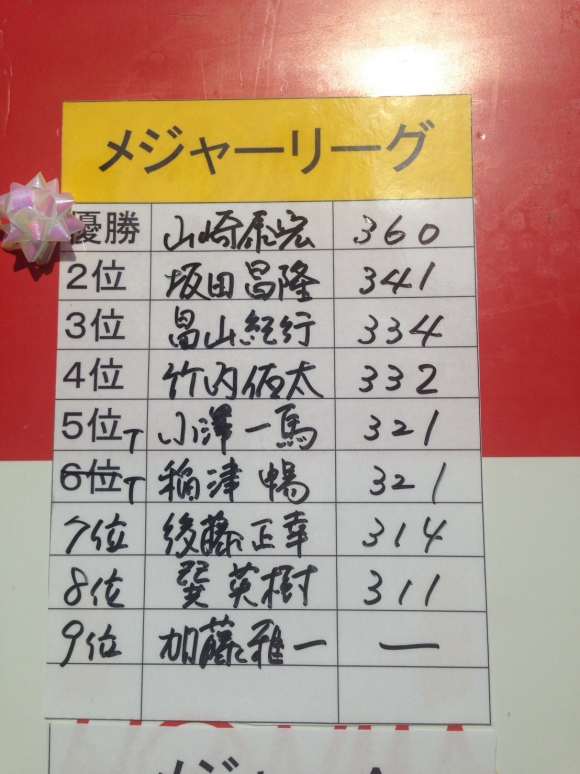 メジャーリーグ
優勝 山崎康宏 360
2位 坂田昌隆 341
3位 畠山紀行 334
4位 竹内佰太 332
5位T 小澤一馬 321
6位T 稲津 暢 321
7位 後藤正幸 314
8位 巽 英樹 311
9位 加藤雅一 ー